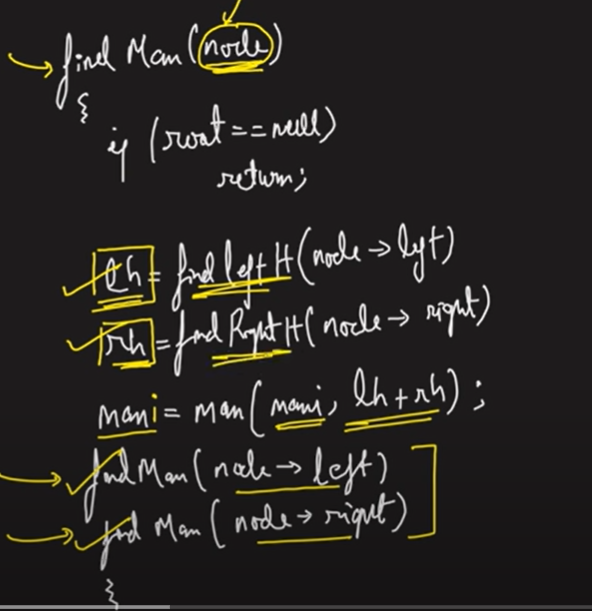 find Max (node)
{
if (root == null)
return;
lh = find left H (node → left)
rh = find Right H (node → right)
maxi = max (maxi, lh + rh);
find Max (node → left)
find Max (node → right)
}